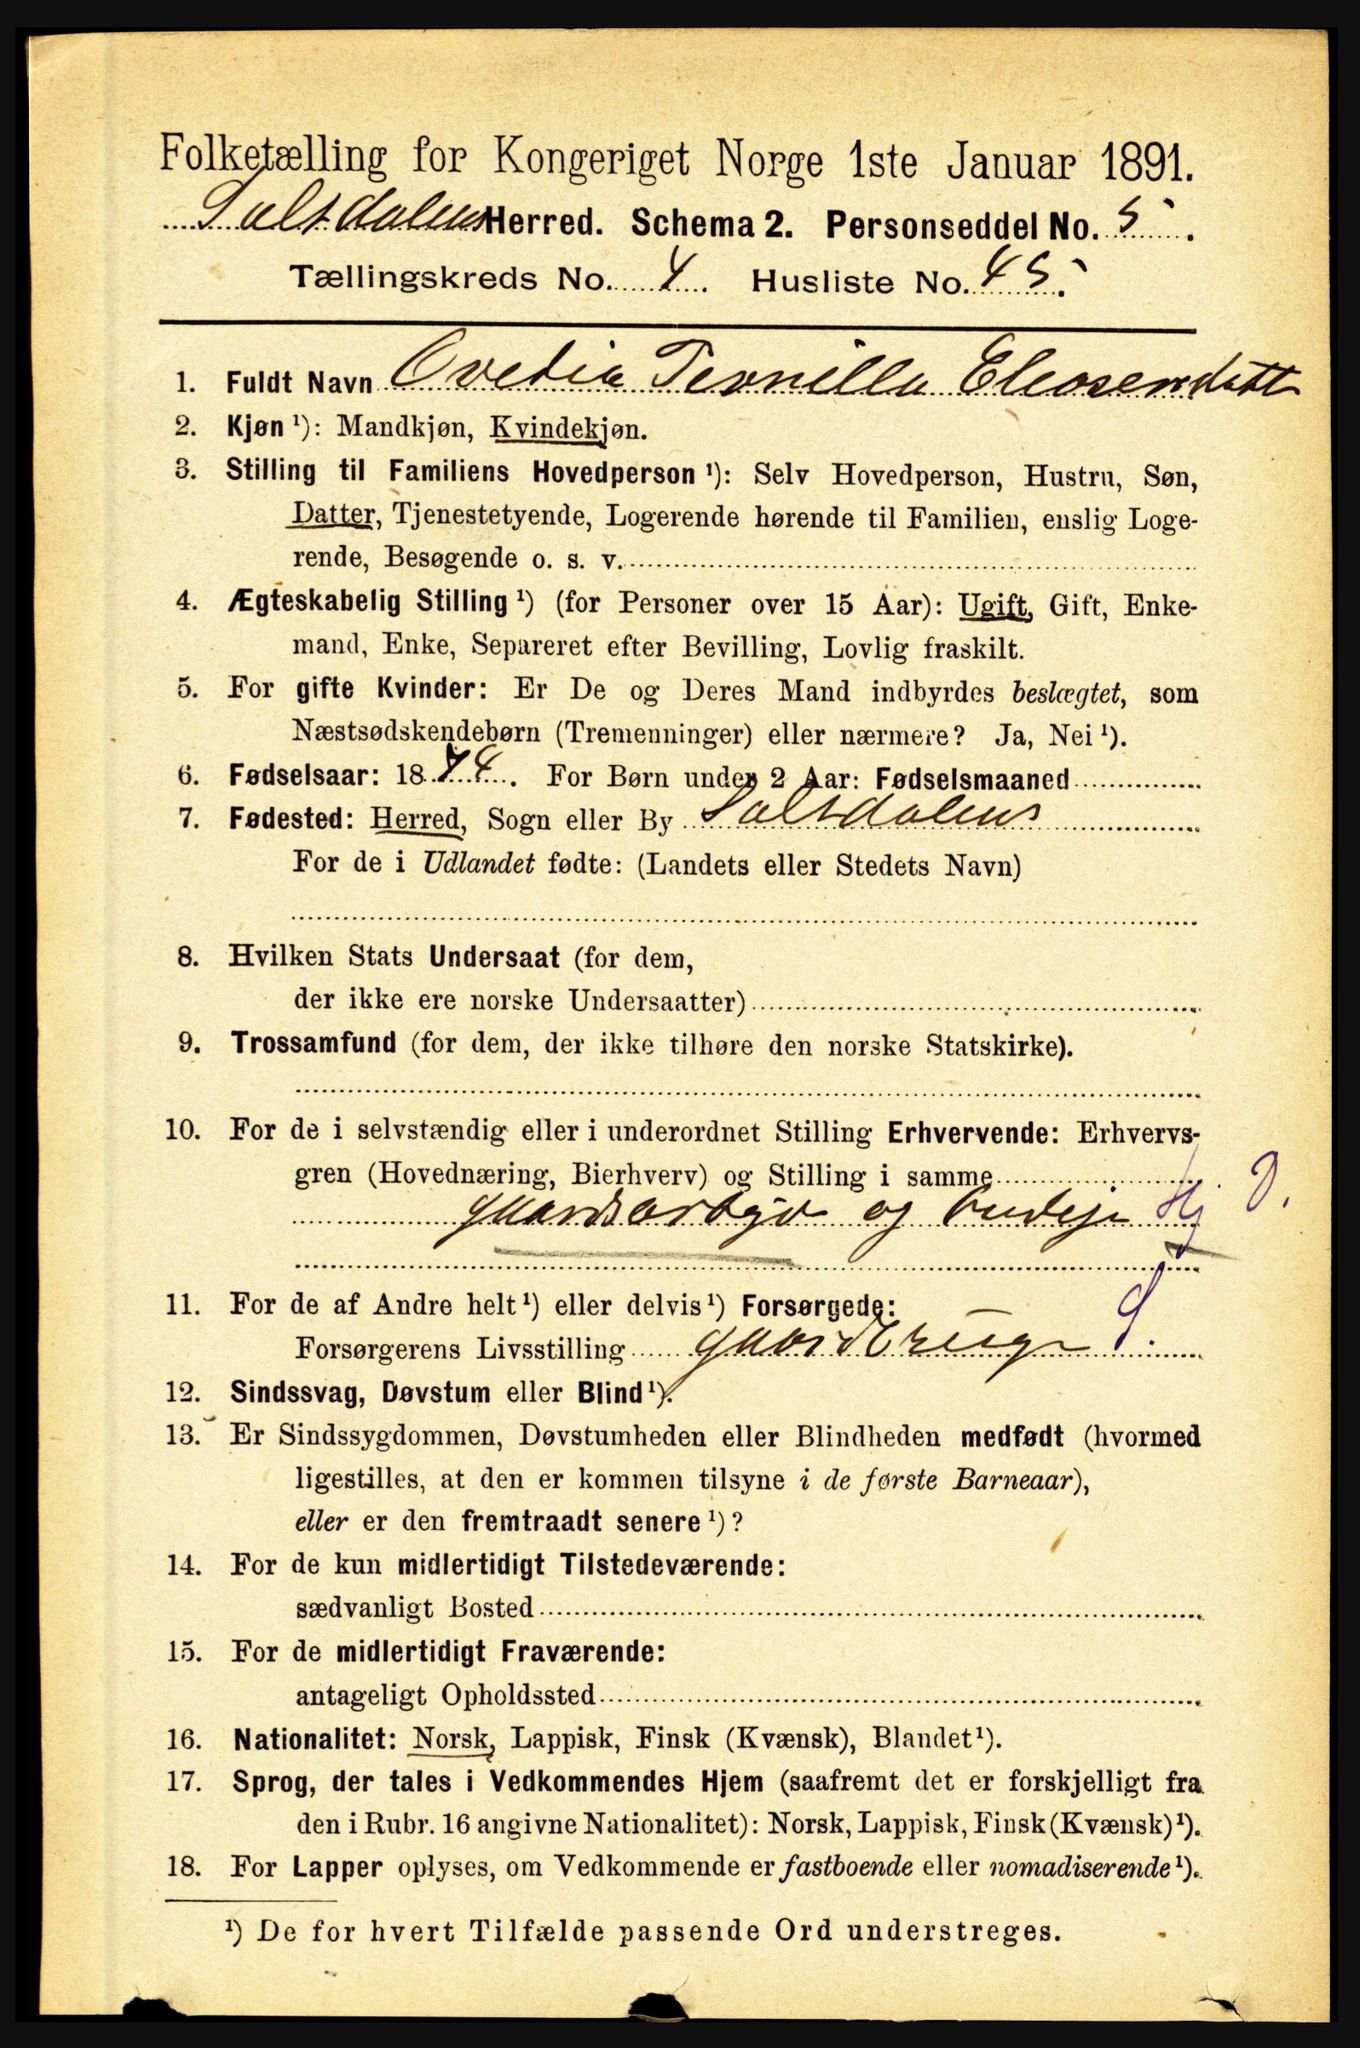 Folketælling for Kongeriget Norge 1ste Januar 1891.
Saltdalens Herred. Schema 2. Personseddel No. 5.
Tællingskreds No. 4. Husliste No. 45.
1. Fuldt Navn Ovedia Pernilla Eleasersdatt
2. Kjøn ¹): Mandkjøn, Kvindekjøn.
3. Stilling til Familiens Hovedperson ¹): Selv Hovedperson, Hustru, Søn,
Datter, Tjenestetyende, Logerende hørende til Familien, enslig Loge-
rende, Besøgende o. s. v.
4. Ægteskabelig Stilling ¹) (for Personer over 15 Aar): Ugift, Gift, Enke-
mand, Enke, Separeret efter Bevilling, Lovlig fraskilt.
5. For gifte Kvinder: Er De og Deres Mand indbyrdes beslægtet, som
Næstsødskendebørn (Tremenninger) eller nærmere? Ja, Nei ¹).
6. Fødselsaar: 1874. For Børn under 2 Aar: Fødselsmaaned
7. Fødested: Herred, Sogn eller By Saltdalens
For de i Udlandet fødte: (Landets eller Stedets Navn)
8. Hvilken Stats Undersaat (for dem,
der ikke ere norske Undersaatter)
9. Trossamfund (for dem, der ikke tilhøre den norske Statskirke).
10. For de i selvstændig eller i underordnet Stilling Erhvervende: Erhvervs-
gren (Hovednæring, Bierhverv) og Stilling i samme
gaardsarbyde og budeje Hj D.
11. For de af Andre helt ¹) eller delvis ¹) Forsørgede:
Forsørgerens Livsstilling gaardbruger S.
12. Sindssvag, Døvstum eller Blind ¹).
13. Er Sindssygdommen, Døvstumheden eller Blindheden medfødt (hvormed
ligestilles, at den er kommen tilsyne i de første Barneaar),
eller er den fremtraadt senere ¹)?
14. For de kun midlertidigt Tilstedeværende:
sædvanligt Bosted
15. For de midlertidigt Fraværende:
antageligt Opholdssted
16. Nationalitet: Norsk, Lappisk, Finsk (Kvænsk), Blandet ¹).
17. Sprog, der tales i Vedkommendes Hjem (saafremt det er forskjelligt fra
den i Rubr. 16 angivne Nationalitet): Norsk, Lappisk, Finsk (Kvænsk) ¹).
18. For Lapper oplyses, om Vedkommende er fastboende eller nomadiserende ¹).
¹) De for hvert Tilfælde passende Ord understreges.